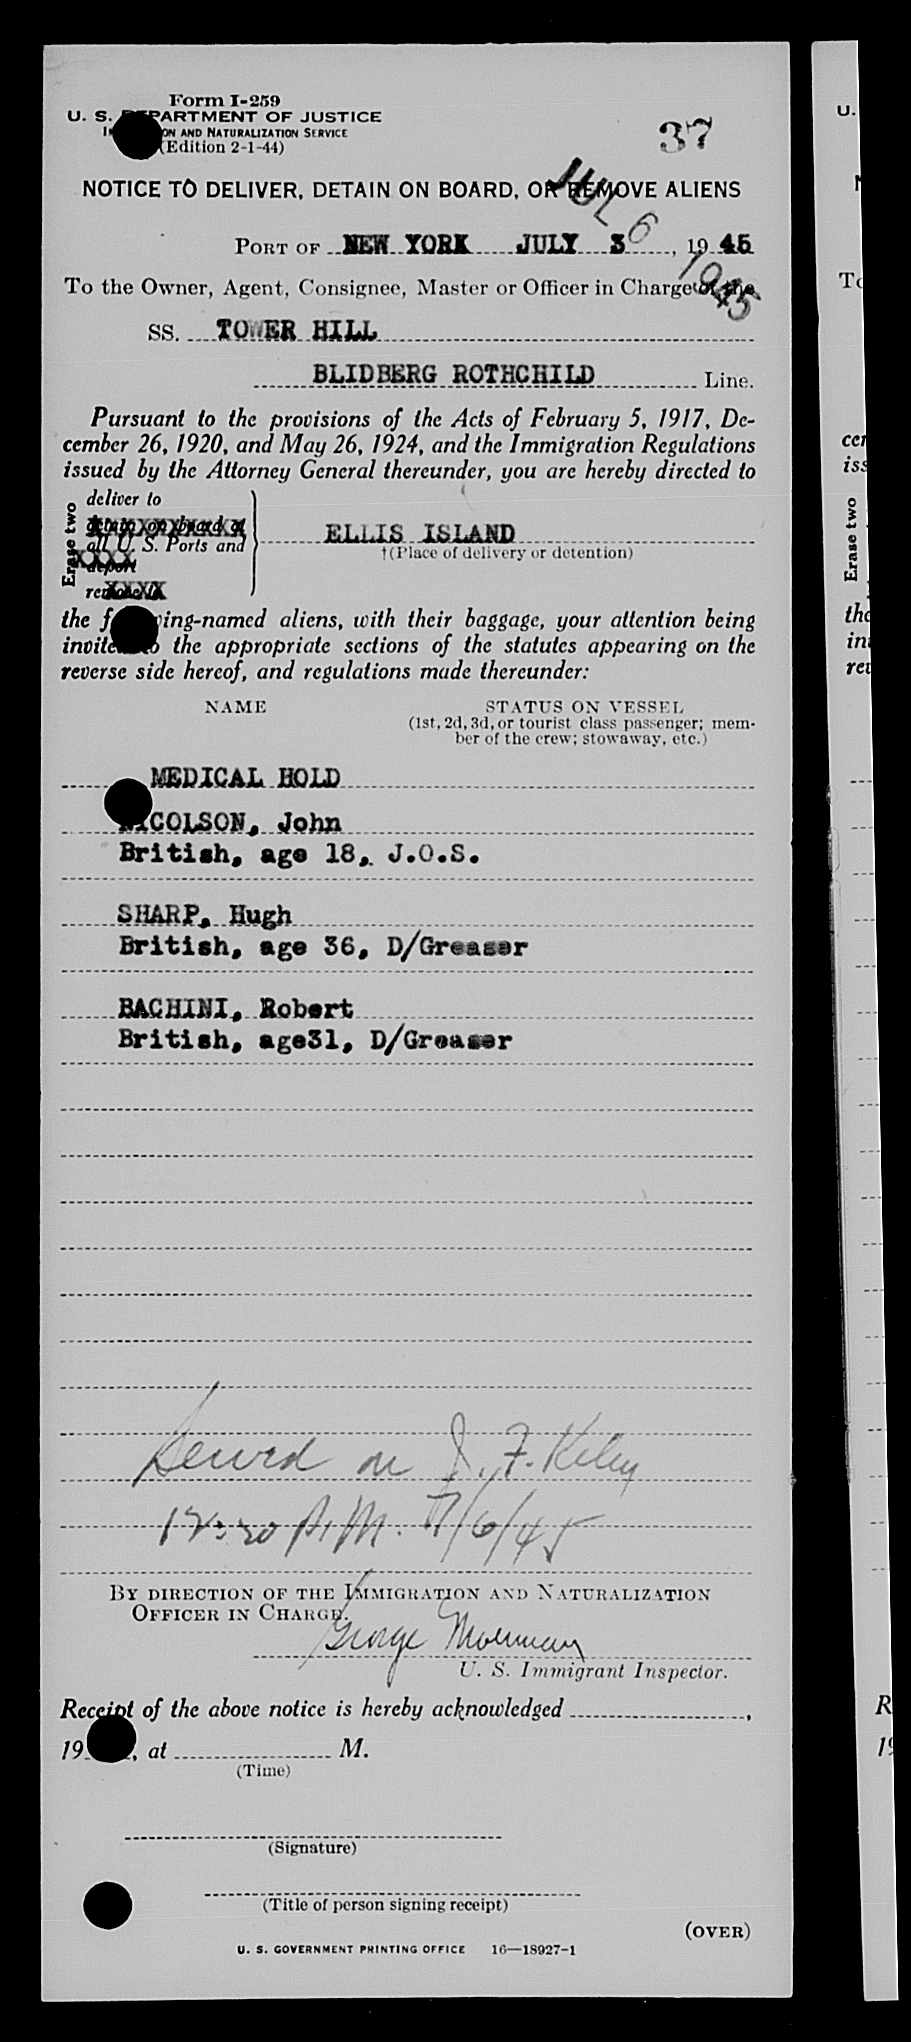 Form I-259
U. S. DEPARTMENT OF JUSTICE
ON AND NATURALIZATION SERVICE
(Edition 2-1-44)
37
NOTICE TO DELIVER, DETAIN ON BOARD, OR REMOVE ALIENS
JUL 6 1945
PORT OF NEW YORK JULY 3, 1945
To the Owner, Agent, Consignee, Master or Officer in Charge of the
SS. TOWER HILL
BLIDBERG ROTHCHILD Line.
Pursuant to the provisions of the Acts of February 5, 1917, De-
cember 26, 1920, and May 26, 1924, and the Immigration Regulations
issued by the Attorney General thereunder, you are hereby directed to
Erase two
deliver to
detain on board at
all U. S. Ports and
deport
remove to
ELLIS ISLAND
†(Place of delivery or detention)
the following-named aliens, with their baggage, your attention being
invited to the appropriate sections of the statutes appearing on the
reverse side hereof, and regulations made thereunder:
NAME STATUS ON VESSEL
(1st, 2d, 3d, or tourist class passenger; mem-
ber of the crew; stowaway, etc.)
MEDICAL HOLD
NICOLSON, John
British, age 18, J.O.S.
SHARP, Hugh
British, age 36, D/Greaser
BACHINI, Robert
British, age31, D/Greaser
Served on J. F. Kelly
12:20 P.M. 7/6/45
BY DIRECTION OF THE IMMIGRATION AND NATURALIZATION
OFFICER IN CHARGE.
George
U. S. Immigrant Inspector.
Receipt of the above notice is hereby acknowledged ,
19 , at M.
(Time)
(Signature)
(Title of person signing receipt)
(OVER)
U. S. GOVERNMENT PRINTING OFFICE 16—18927-1
U.
To
cem
iss
Erase two
the
inv
rev
R
19